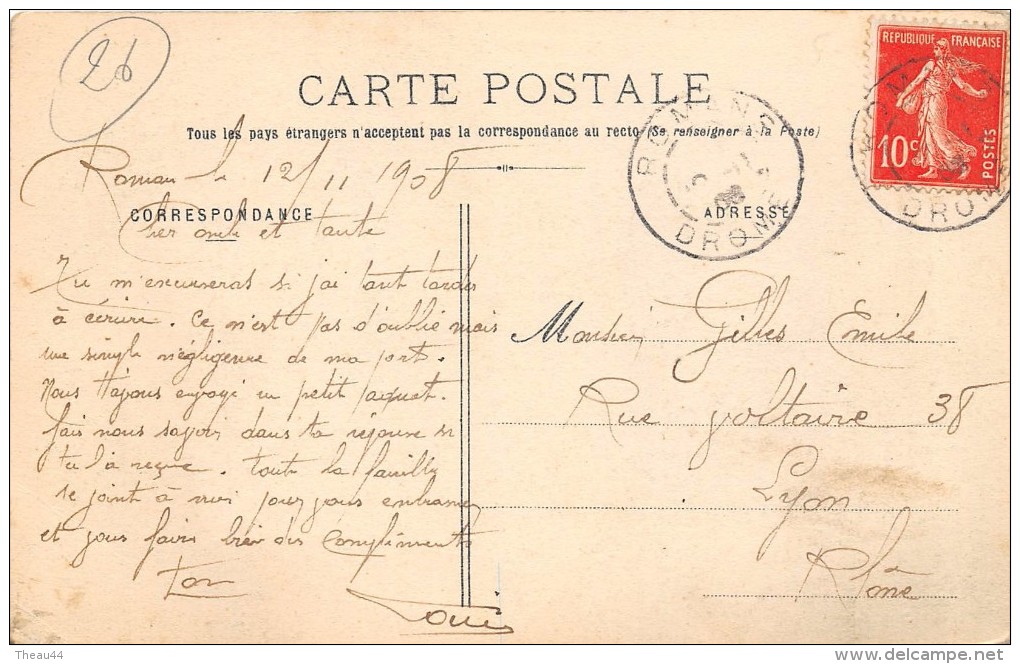 26
CARTE POSTALE
Tous les pays étrangers n'acceptent pas la correspondance au recto (Se renseigner à la Poste)
REPUBLIQUE FRANÇAISE
10c
POSTES
ROMANS
DROME
ROMANS
DROME
Romans le 12/11 1908
CORRESPONDANCE
ADRESSE
Cher oncle et tante
Tu m'excuseras si j'ai tant tarder
à écrire. Ce n'est pas d'oublié mais
une simple négligence de ma part.
Nous t'avons envoyé un petit paquet.
fais nous savoir dans ta réponse si
tu l'a reçue. toute la familly
se joint à moi pour vous embrasser
et vous faire bien des compliments
ton
Louis
Monsieur Gilles Emile
Rue voltaire 38
Lyon
Rhône
Theau44
delcampe.net